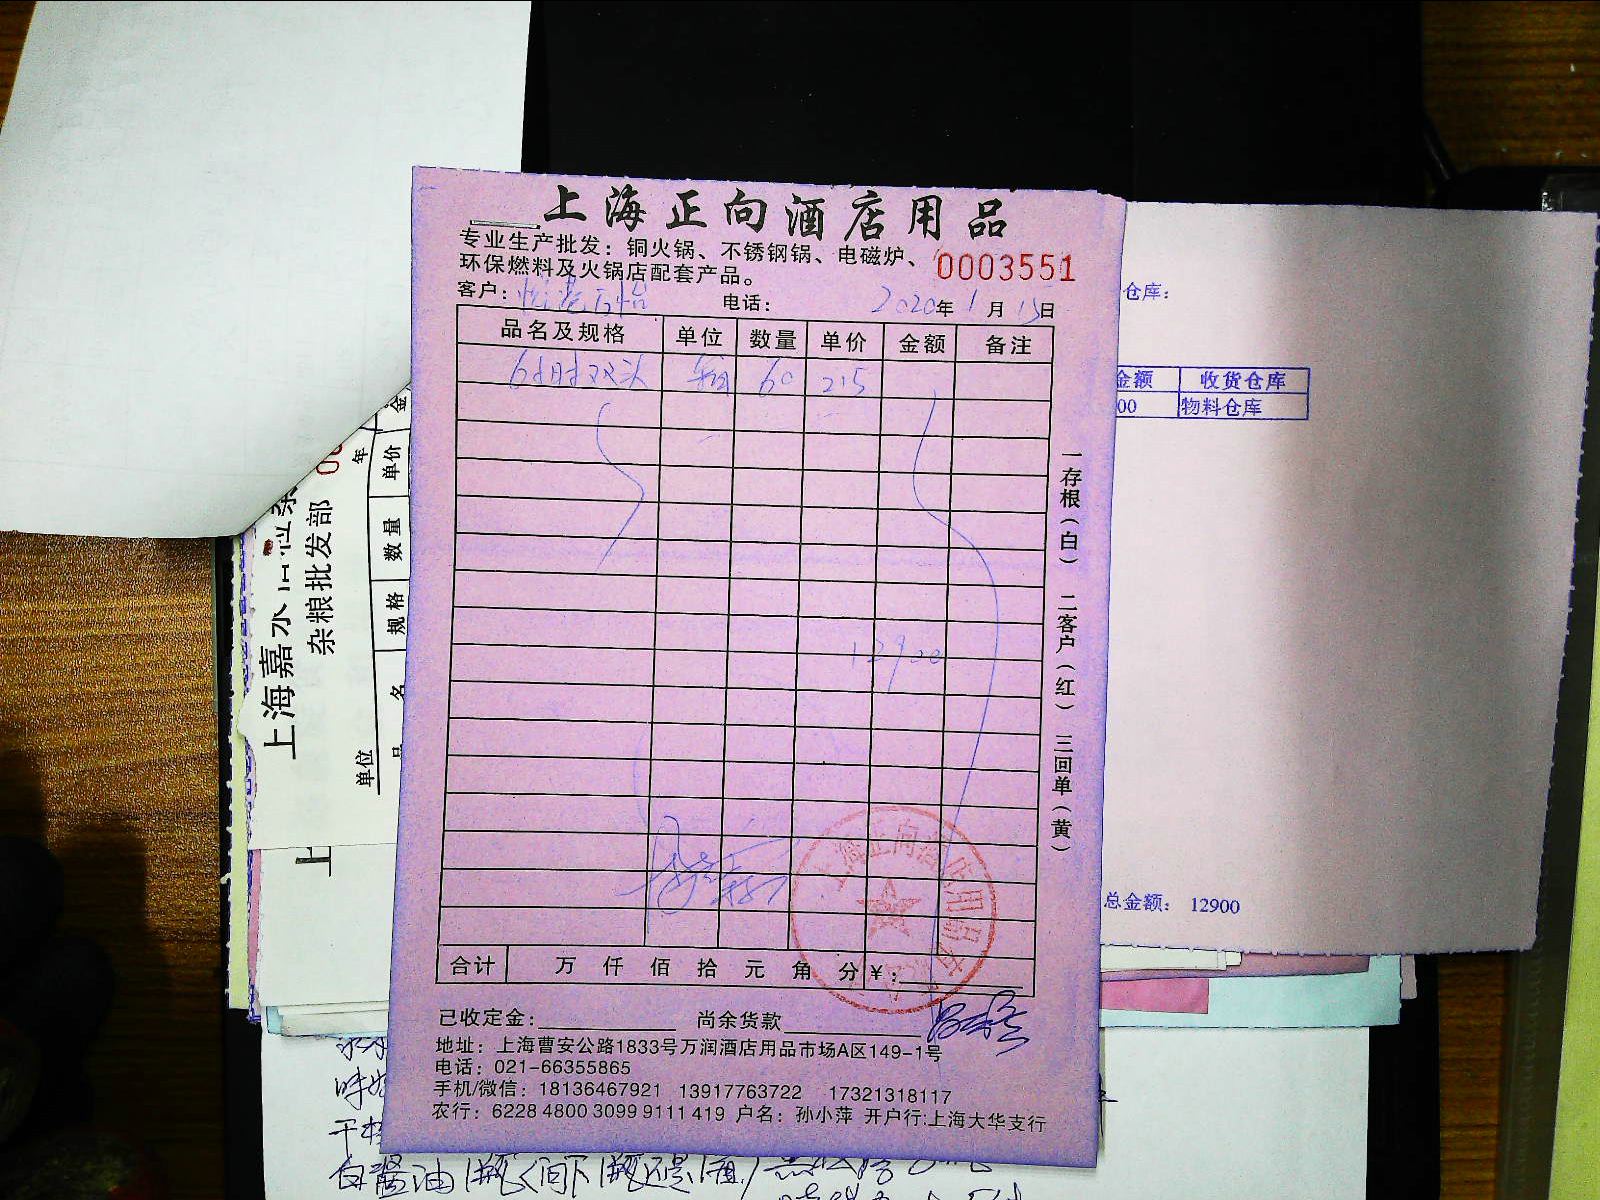 上海正向酒店用品
专业生产批发：铜火锅、不锈钢锅、电磁炉、
环保燃料及火锅店配套产品。
0003551
客户： 电话： 2020年1月15日
品名及规格 单位 数量 单价 金额 备注
6小时双头 箱 60 215
12900
合计 万 仟 佰 拾 元 角 分 ¥：
已收定金： 尚余货款
地址：上海曹安公路1833号万润酒店用品市场A区149-1号
电话：021-66355865
手机/微信：18136467921 13917763722 17321318117
农行：6228 4800 3099 9111 419 户名：孙小萍 开户行:上海大华支行
一存根（白） 二客户（红） 三回单（黄）
上海正向酒店用品
仓库：
金额 收货仓库
00 物料仓库
总金额： 12900
上海嘉
杂粮批发部
年
单位
品 名 规格 数量 单价 金
上
白酱油